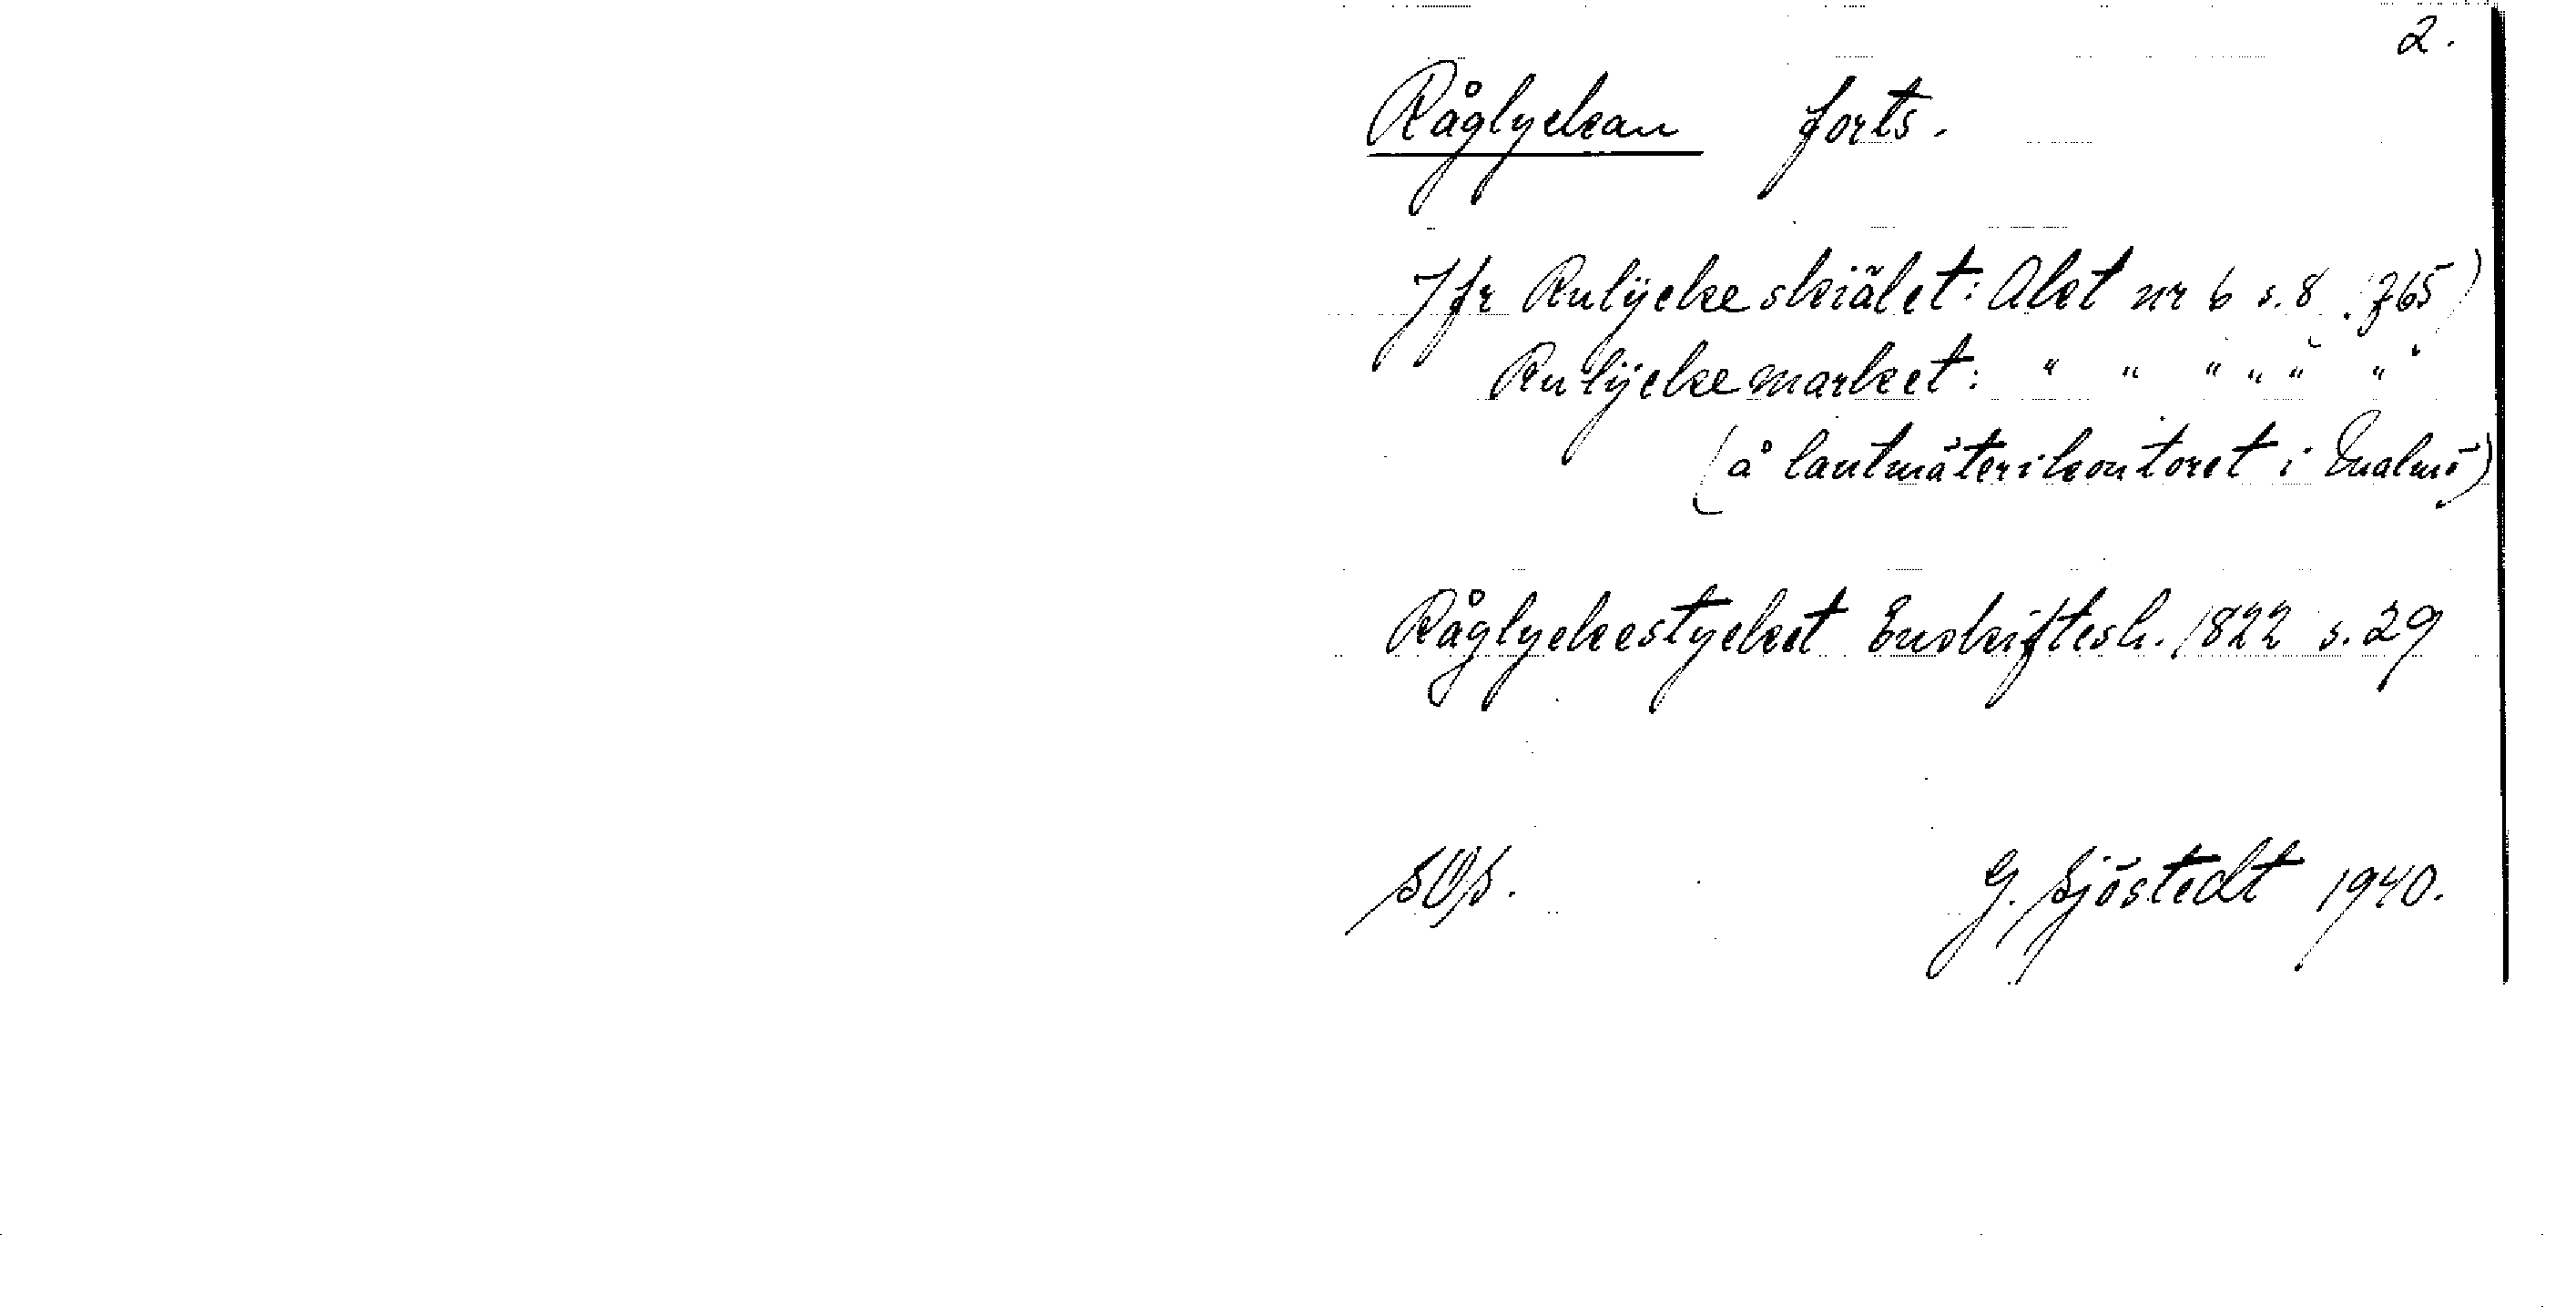 2.
Råglyckan forts.
Jfr Rulÿckeskiälet: Akt nr 6 s. 8 (765)
Rulÿckemarket: " " " " " "
(å lantmäterikontoret i Malmö)
Råglyckestycket Enskiftesh. 1822 s. 29
SOS.
G. Sjöstedt 1940.